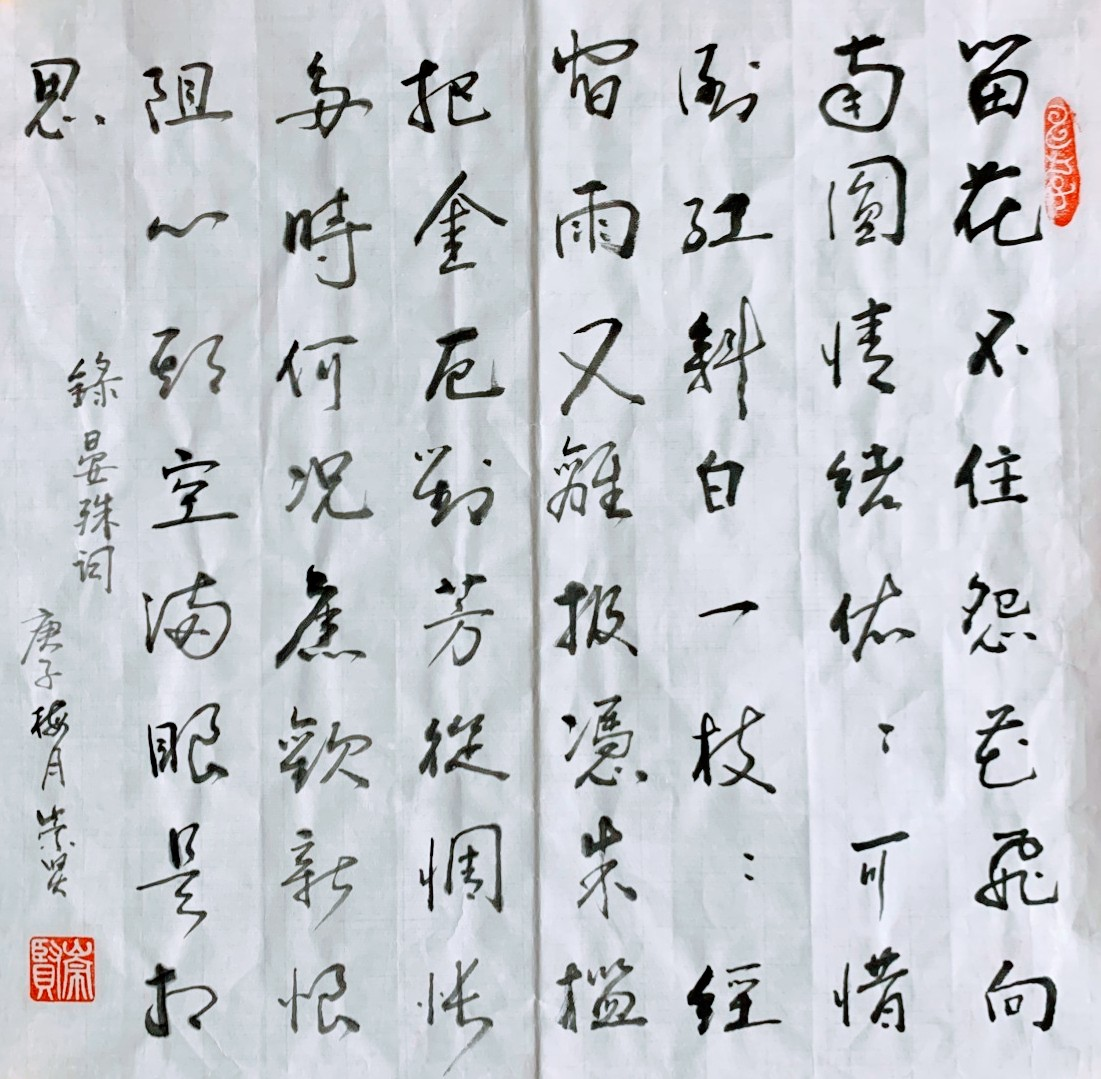 留花不住怨花飛向
南圓情緒依〻可惜
倒紅斜白一枝〻經
宿雨又離披憑朱檻
把金卮對芳從惆悵
多時何況舊歡新恨
阻心期空滿眼是相
思
錄晏殊詞
庚子梅月崇賢
崇賢